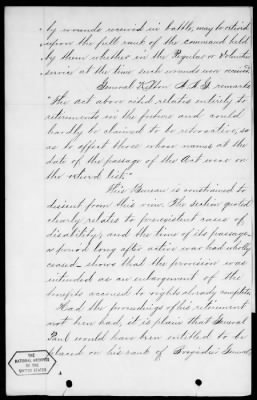 by wounds received in battle, may be retired
upon the full rank of the command held
by them whether in the Regular or Volunteer
service at the time such wounds were received.
General A. A. G. remarks
"The act above cited relates entirely to
retirements in the future and could
hardly be claimed to be retroactive, so
as to affect those whose names at the
date of the passage of the Act were on
the retired list."
This Bureau is constrained to
dissent from this view. The section quoted
clearly relates to preexistent cases of
disability, and the time of its passage
a period long after active war had wholly
ceased shows that the provision was
intended as an enlargement of the
benefits accrued to rights already complete.
Had the proceedings of his retirement
not been had, it is plain that General
Paul would have been entitled to be
placed on his rank of Brigadier General,
THE
NATIONAL ARCHIVES
OF THE
UNITED STATES